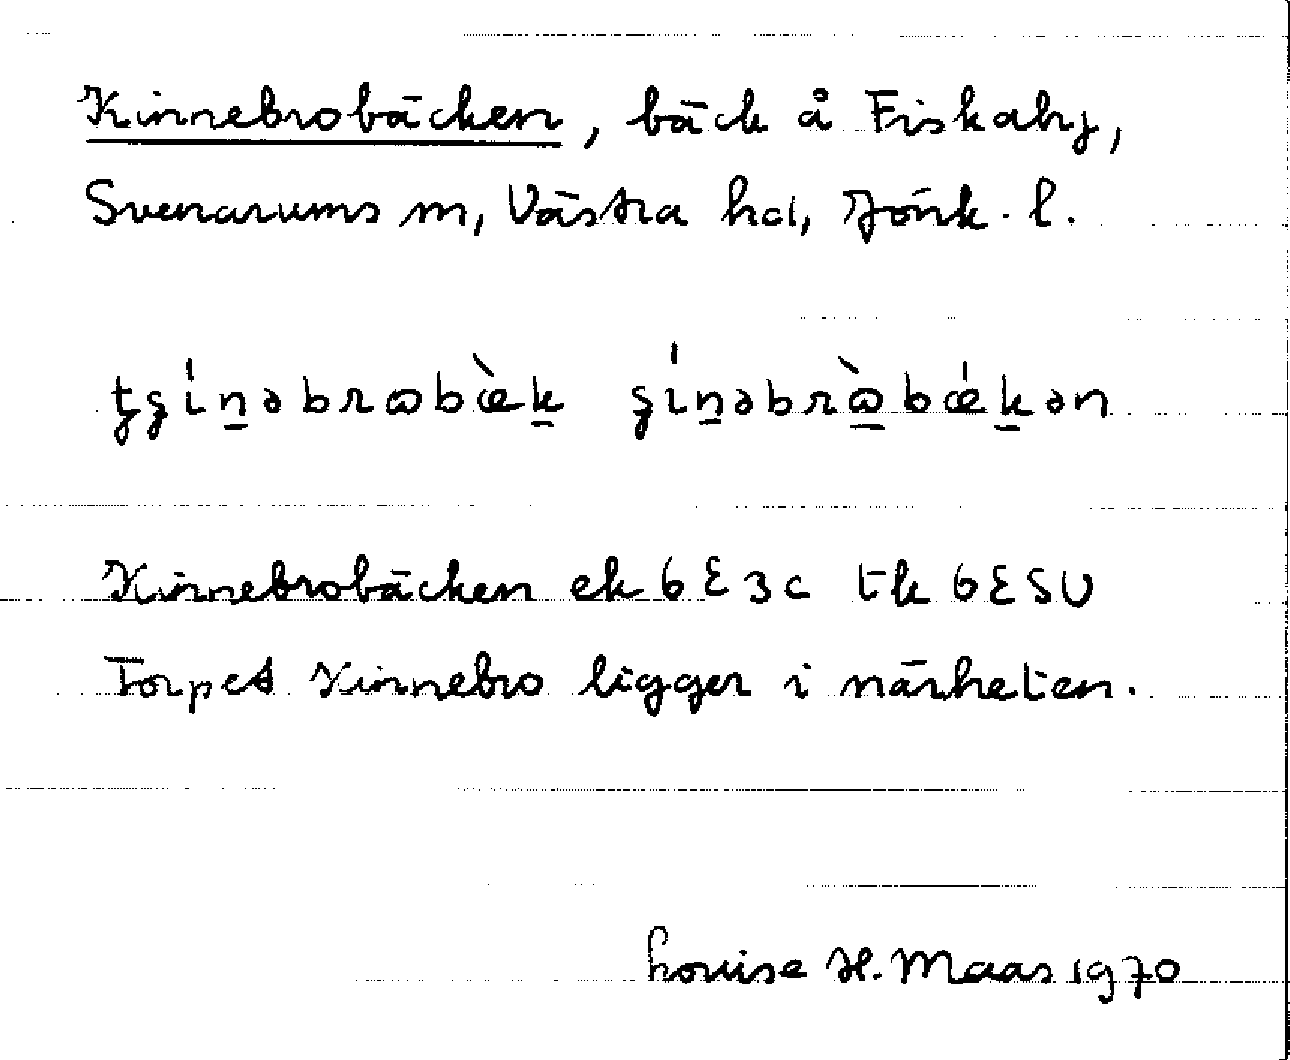 Kinnebrobäcken, bäck å Fiskaby,
Svenarums sn, Västra hd, Jönk. l.
Kinnebrobäcken ek 6E3c tk 6ESV
Torpet Kinnebro ligger i närheten.
Louise H. Maas 1970